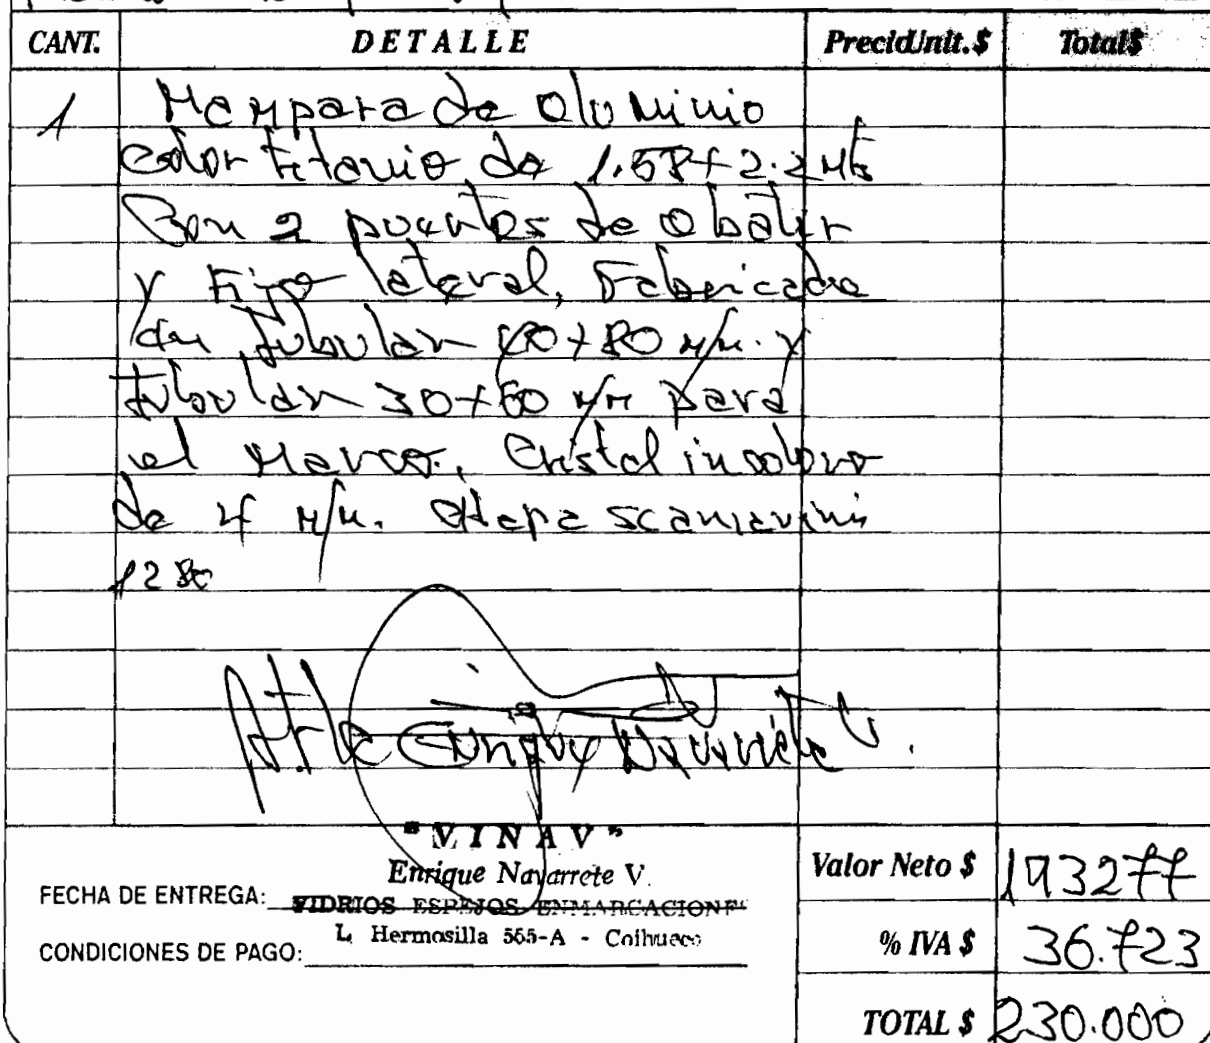 CANT. DETALLE Precio Unit. $ Total $
1 Mampara de aluminio
color titanio de 1.58+2.2 Mts
Con 2 puertas de abatir
y fijo lateral, Fabricada
en tubular 40+80 m/m. y
tubular 30+60 m/m para
el Marco, Cristal incoloro
de 4 m/m. Chapa scanavini
1280
Atte Enrique Navarrete V.
"VINAV"
Enrique Navarrete V.
FECHA DE ENTREGA: VIDRIOS ESPEJOS ENMARCACIONE
L. Hermosilla 565-A - Coihueco
CONDICIONES DE PAGO:
Valor Neto $ 193277
% IVA $ 36.723
TOTAL $ 230.000